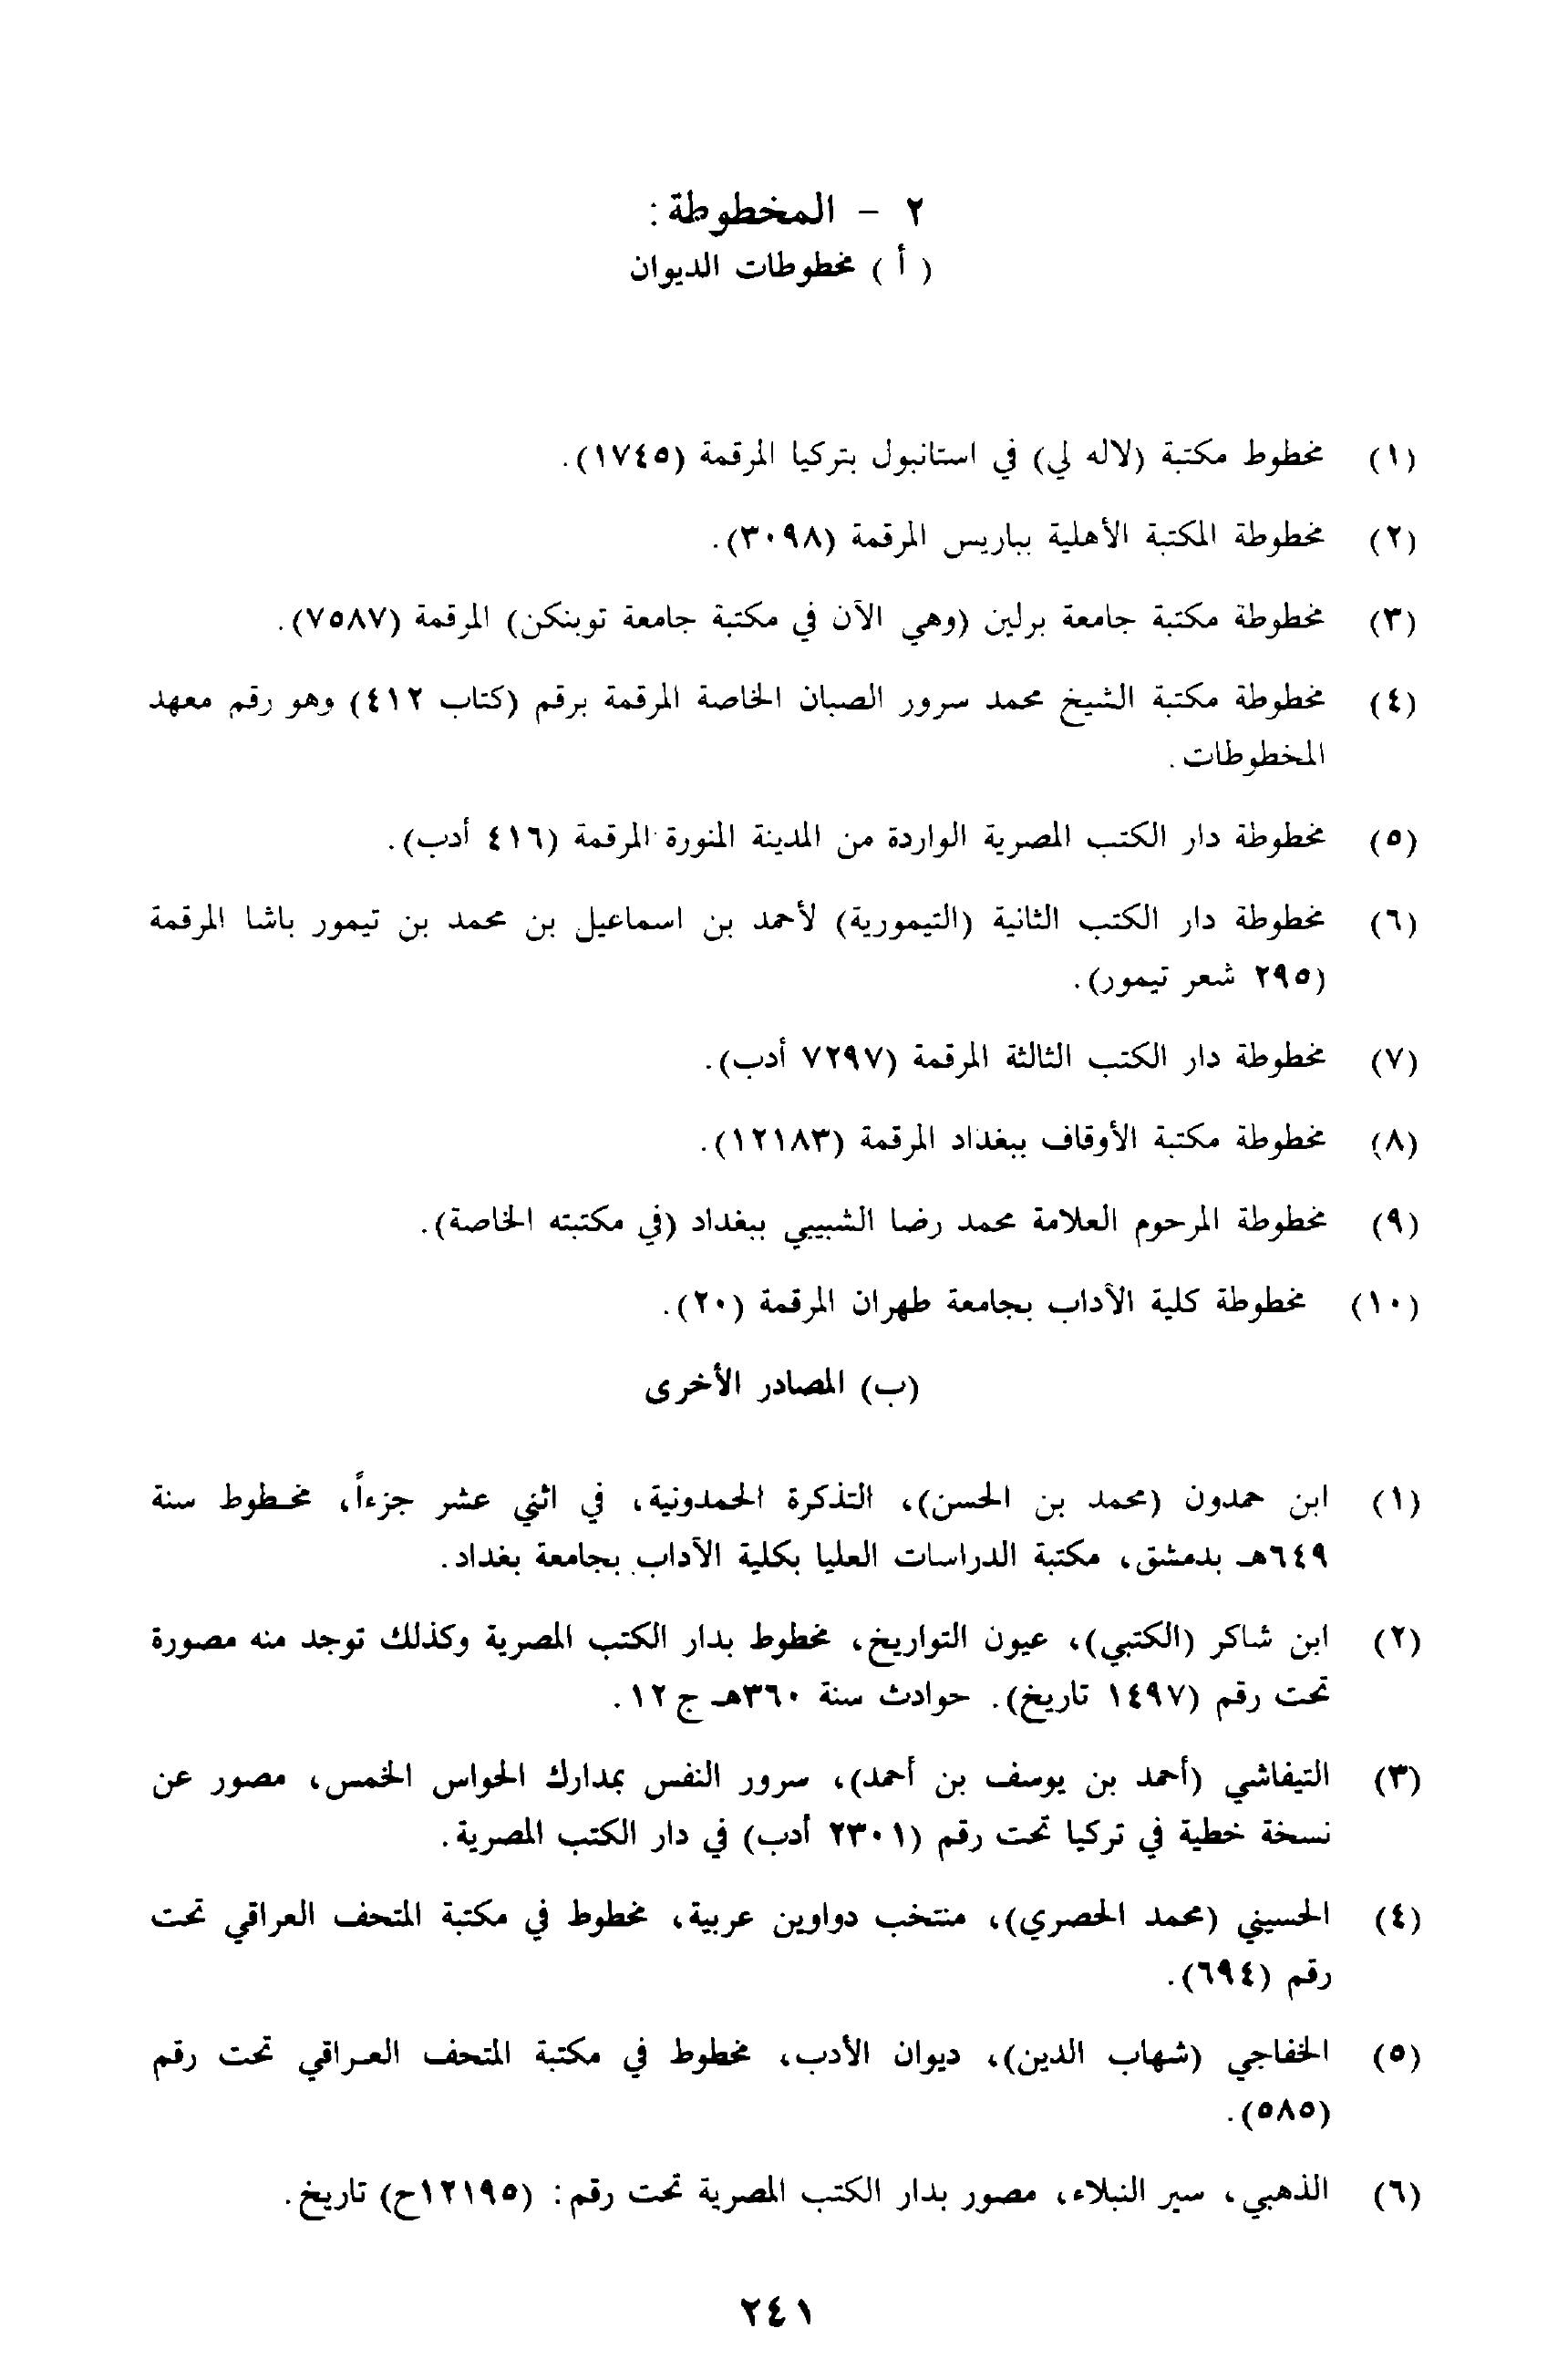 ٢ - المخطوطة :
( أ ) مخطوطات الديوان
(١) مخطوط مكتبة (لاله لي) في استانبول بتركيا المرقمة (١٧٤٥).
(٢) مخطوطة المكتبة الأهلية بباريس المرقمة (٣٠٩٨).
(٣) مخطوطة مكتبة جامعة برلين (وهي الآن في مكتبة جامعة توبنكن) المرقمة (٧٥٨٧).
(٤) مخطوطة مكتبة الشيخ محمد سرور الصبان الخاصة المرقمة برقم (كتاب ٤١٢) وهو رقم معهد
المخطوطات.
(٥) مخطوطة دار الكتب المصرية الواردة من المدينة المنورة المرقمة (٤١٦ أدب).
(٦) مخطوطة دار الكتب الثانية (التيمورية) لأحمد بن اسماعيل بن محمد بن تيمور باشا المرقمة
(٢٩٥ شعر تيمور).
(٧) مخطوطة دار الكتب الثالثة المرقمة (٧٢٩٧ أدب).
(٨) مخطوطة مكتبة الأوقاف ببغداد المرقمة (١٢١٨٣).
(٩) مخطوطة المرحوم العلامة محمد رضا الشبيبي ببغداد (في مكتبته الخاصة).
(١٠) مخطوطة كلية الآداب بجامعة طهران المرقمة (٢٠).
(ب) المصادر الأخرى
(١) ابن حمدون (محمد بن الحسن)، التذكرة الحمدونية، في اثني عشر جزءاً، مخطوط سنة
٦٤٩هـ بدمشق، مكتبة الدراسات العليا بكلية الآداب بجامعة بغداد.
(٢) ابن شاكر (الكتبي)، عيون التواريخ، مخطوط بدار الكتب المصرية وكذلك توجد منه مصورة
تحت رقم (١٤٩٧ تاريخ). حوادث سنة ٣٦٠هـ ج ١٢.
(٣) التيفاشي (أحمد بن يوسف بن أحمد)، سرور النفس بمدارك الحواس الخمس، مصور عن
نسخة خطية في تركيا تحت رقم (٢٣٠١ أدب) في دار الكتب المصرية.
(٤) الحسيني (محمد الحصري)، منتخب دواوين عربية، مخطوط في مكتبة المتحف العراقي تحت
رقم (٦٩٤).
(٥) الخفاجي (شهاب الدين)، ديوان الأدب، مخطوط في مكتبة المتحف العراقي تحت رقم
(٥٨٥).
(٦) الذهبي، سير النبلاء، مصور بدار الكتب المصرية تحت رقم: (١٢١٩٥ح) تاريخ.
٢٤١